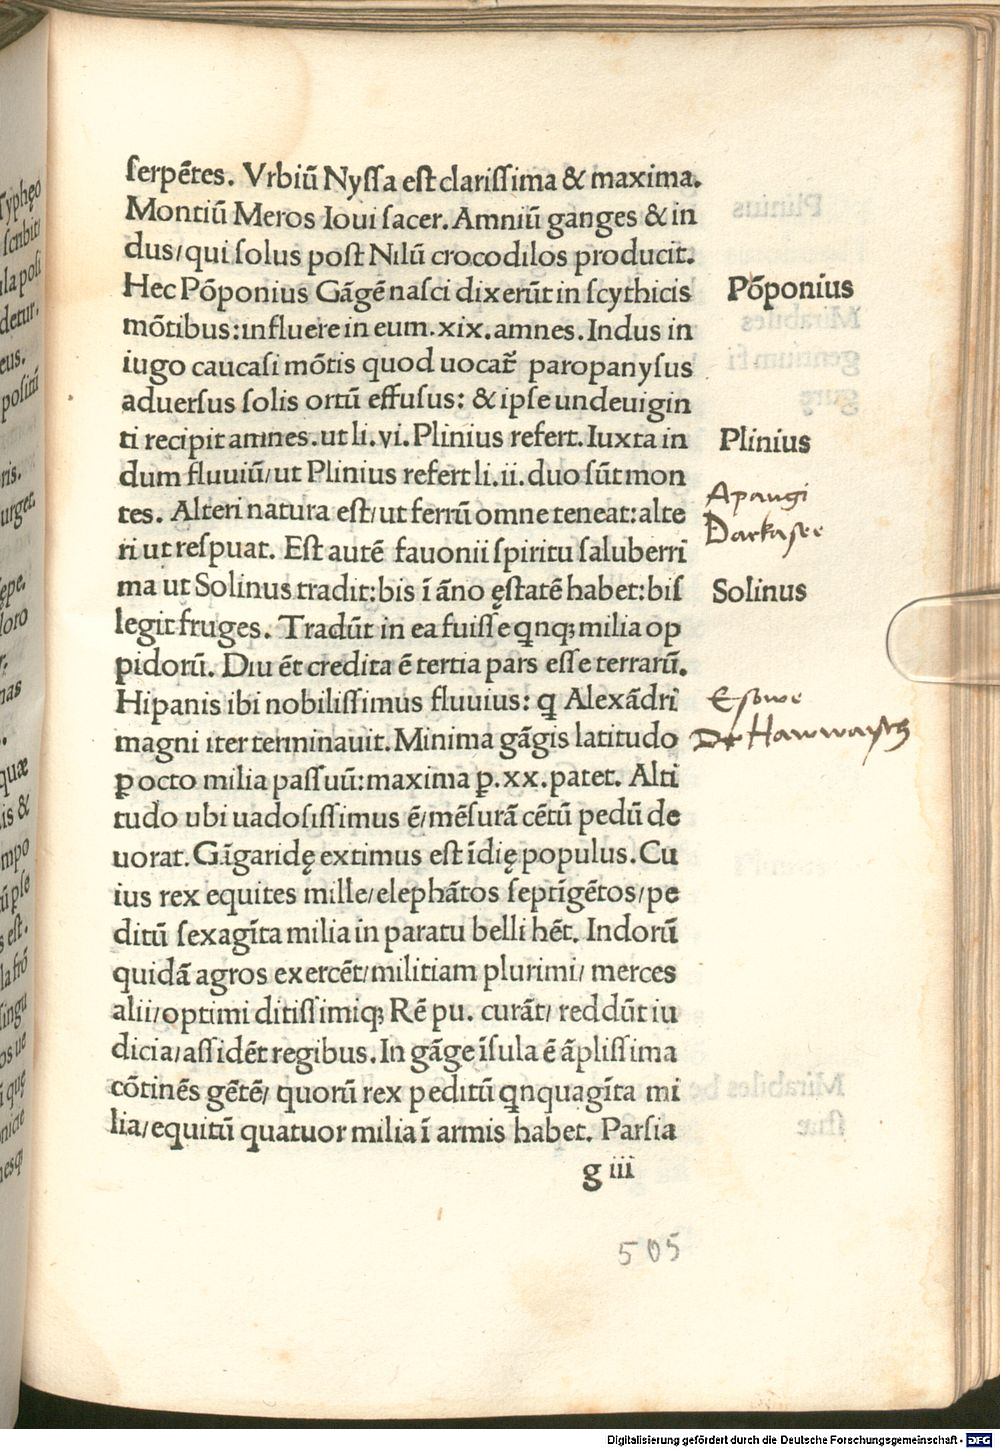 serpētes. Vrbiū Nyssa est clarissima & maxima.
Montiū Meros Ioui sacer. Amniū ganges & in
dus/qui solus post Nilū crocodilos producit.
Hec Pōponius Gāgē nasci dixerūt in scythicis
mōtibus:influere in eum.xix.amnes. Indus in
iugo caucasi mōtis quod uocat᷑ paropanysus
aduersus solis ortū effusus: & ipse undeuigin
ti recipit amnes.ut li.vi. Plinius refert. Iuxta in
dum fluuiū/ut Plinius refert li.ii.duo sūt mon
tes. Alteri natura est/ut ferrū omne teneat:alte
ri ut respuat. Est autē fauonii spiritu saluberri
ma ut Solinus tradit:bis ī āno ęstatē habet:bis
legit fruges. Tradūt in ea fuisse qnqꝫ milia op
pidorū. Diu ēt credita ē tertia pars esse terrarū.
Hipanis ibi nobilissimus fluuius: ꝗ Alexādri
magni iter terminauit. Minima gāgis latitudo
ꝑ octo milia passuū:maxima ꝑ.xx.patet. Alti
tudo ubi uadosissimus ē/mēsurā cētū pedū de
uorat. Gāgaridę extimus est īdię populus. Cu
ius rex equites mille/elephātos septīgētos/pe
ditū sexagīta milia in paratu belli hēt. Indorū
quidā agros exercēt/militiam plurimi/ merces
alii/optimi ditissimiqꝫ Rē pu. curāt/ reddūt iu
dicia/assidēt regibus. In gāge īsula ē āplissima
cōtinēs gētē/ quorū rex peditū qnquagīta mi
lia/equitū quatuor milia ī armis habet. Parsia
g iii
Pōponius
Plinius
Apangi
Darkasee
Solinus
Esowe
505
Digitalisierung gefördert durch die Deutsche Forschungsgemeinschaft - DFG